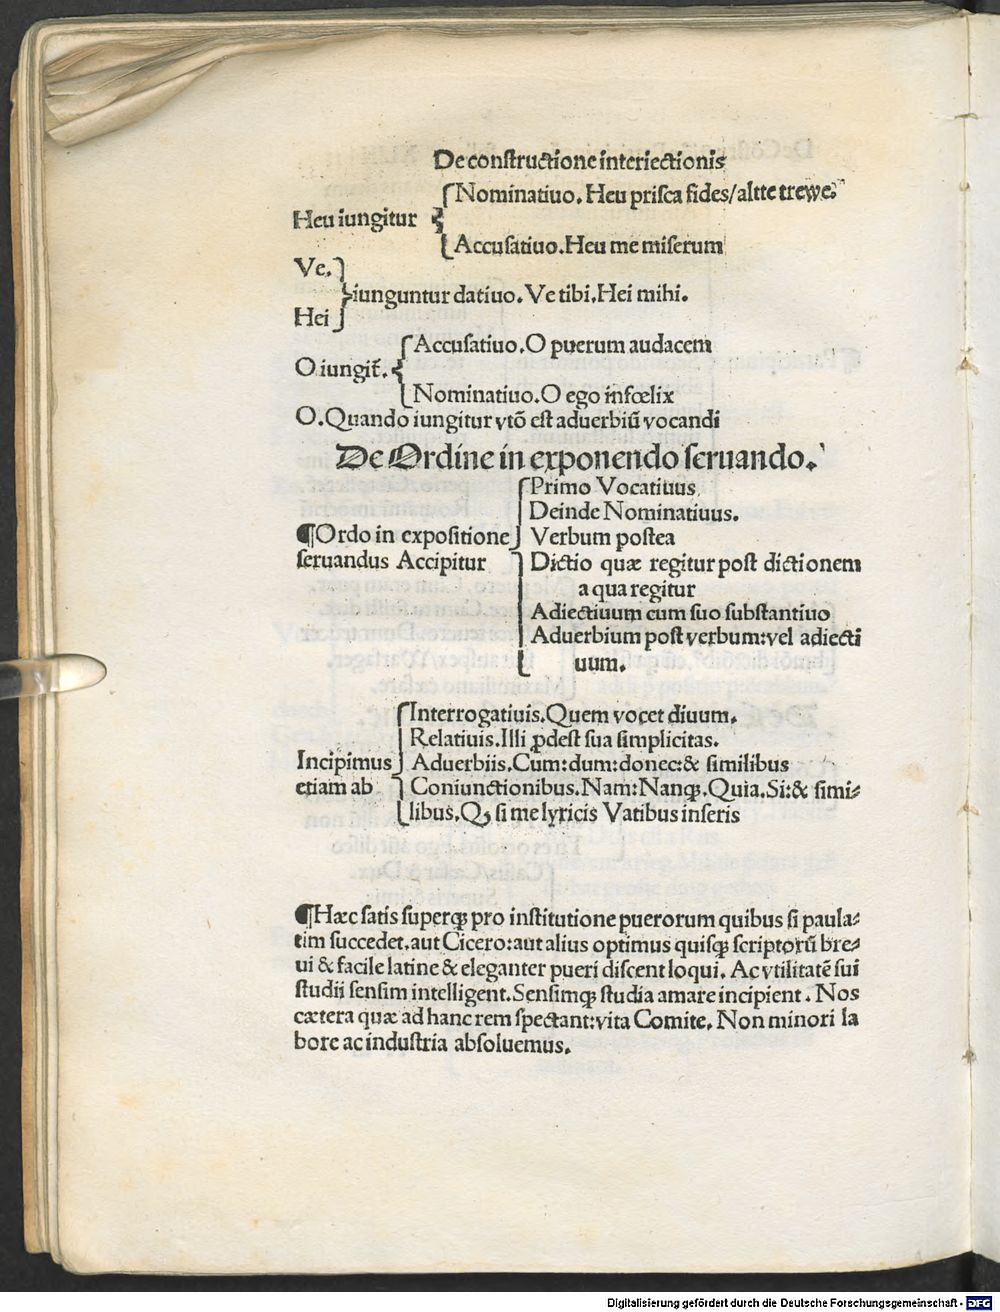 De constructione interiectionis
Nominatiuo. Heu prisca fides/altte trewe.
Heu iungitur
Accusatiuo. Heu me miserum
Ve.
iunguntur datiuo. Ve tibi. Hei mihi.
Hei
Accusatiuo. O puerum audacem
O iungit᷑.
Nominatiuo. O ego infœlix
O. Quando iungitur vtō est aduerbiū vocandi
De Ordine in exponendo seruando.
Primo Vocatiuus
Deinde Nominatiuus.
¶Ordo in expositione
Verbum postea
seruandus Accipitur
Dictio quæ regitur post dictionem
a qua regitur
Adiectiuum cum suo substantiuo
Aduerbium post verbum: vel adiecti
uum.
Interrogatiuis. Quem vocet diuum.
Relatiuis. Illi ꝓdest sua simplicitas.
Incipimus
Aduerbiis. Cum: dum: donec: & similibus
etiam ab
Coniunctionibus. Nam: Nanqꝫ. Quia. Si: & simi⸗
libus. Qꝫ si me lyricis Vatibus inseris
¶Hæc satis superqꝫ pro institutione puerorum quibus si paula⸗
tim succedet, aut Cicero: aut alius optimus quisqꝫ scriptorū bre⸗
ui & facile latine & eleganter pueri discent loqui. Ac vtilitatē sui
studii sensim intelligent. Sensimqꝫ studia amare incipient. Nos
cætera quæ ad hanc rem spectant: vita Comite. Non minori la
bore ac industria absoluemus.
Digitalisierung gefördert durch die Deutsche Forschungsgemeinschaft - DFG